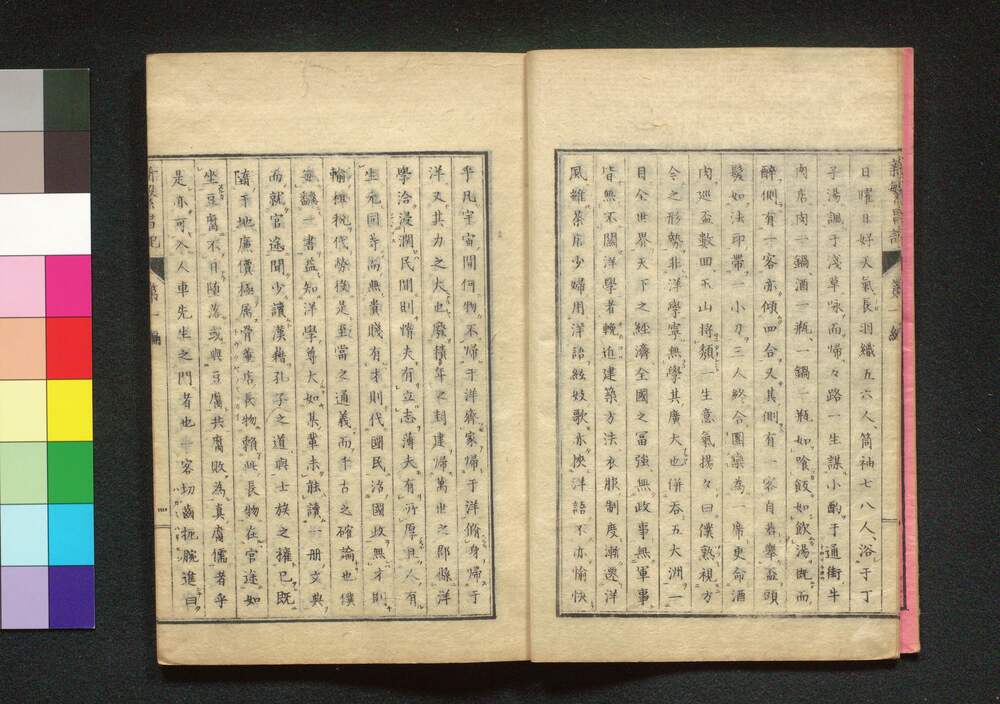 日曜日好天氣長羽織五六人筒袖七八人浴于丁
子湯諷于淺草咏而歸々路一生謀小酌于通街牛
肉店肉一鍋酒一瓶一鍋一瓶如喰飯如飲湯既而
醉側有一客亦傾四合又其側有一客自若擧盃頭
髮如法印帶一小刀三人終合團欒為一席更命酒
肉巡盃數回玉山將頽一生意氣揚々曰僕熟視方
今之形勢非洋學寧無學其廣大也併吞五大洲一
目全世界天下之經濟全國之冨強無政事無軍事
皆無不關洋學者輓近建築方法衣服制度漸遷洋
風雖茶店少婦用洋語絃妓歌亦挾洋語不亦愉快
乎凡宇宙間何物不歸于洋齊家歸于洋脩身歸于
洋又其力之大也廢積年之封建歸萬世之郡縣洋
學洽浸潤民間則惰夫有立志薄夫有所厚且人有
生元同等而無貴賤有才則代國民洛國政無才則
輸租税代勞役是至當之通義而千古之確論也僕
每讀一書益知洋學尊大如某輩未能讀一册文典
而就官途聞少讀漢籍孔子之道與士族之權已既
隨于地廉價極馬骨董店長物賴此長物在官途如
坐豆腐不日陷落或與豆腐共腐敗為真腐儒者乎
是亦可入人車先生之門者也一客切齒扼腕進曰
新繁昌記
第一編